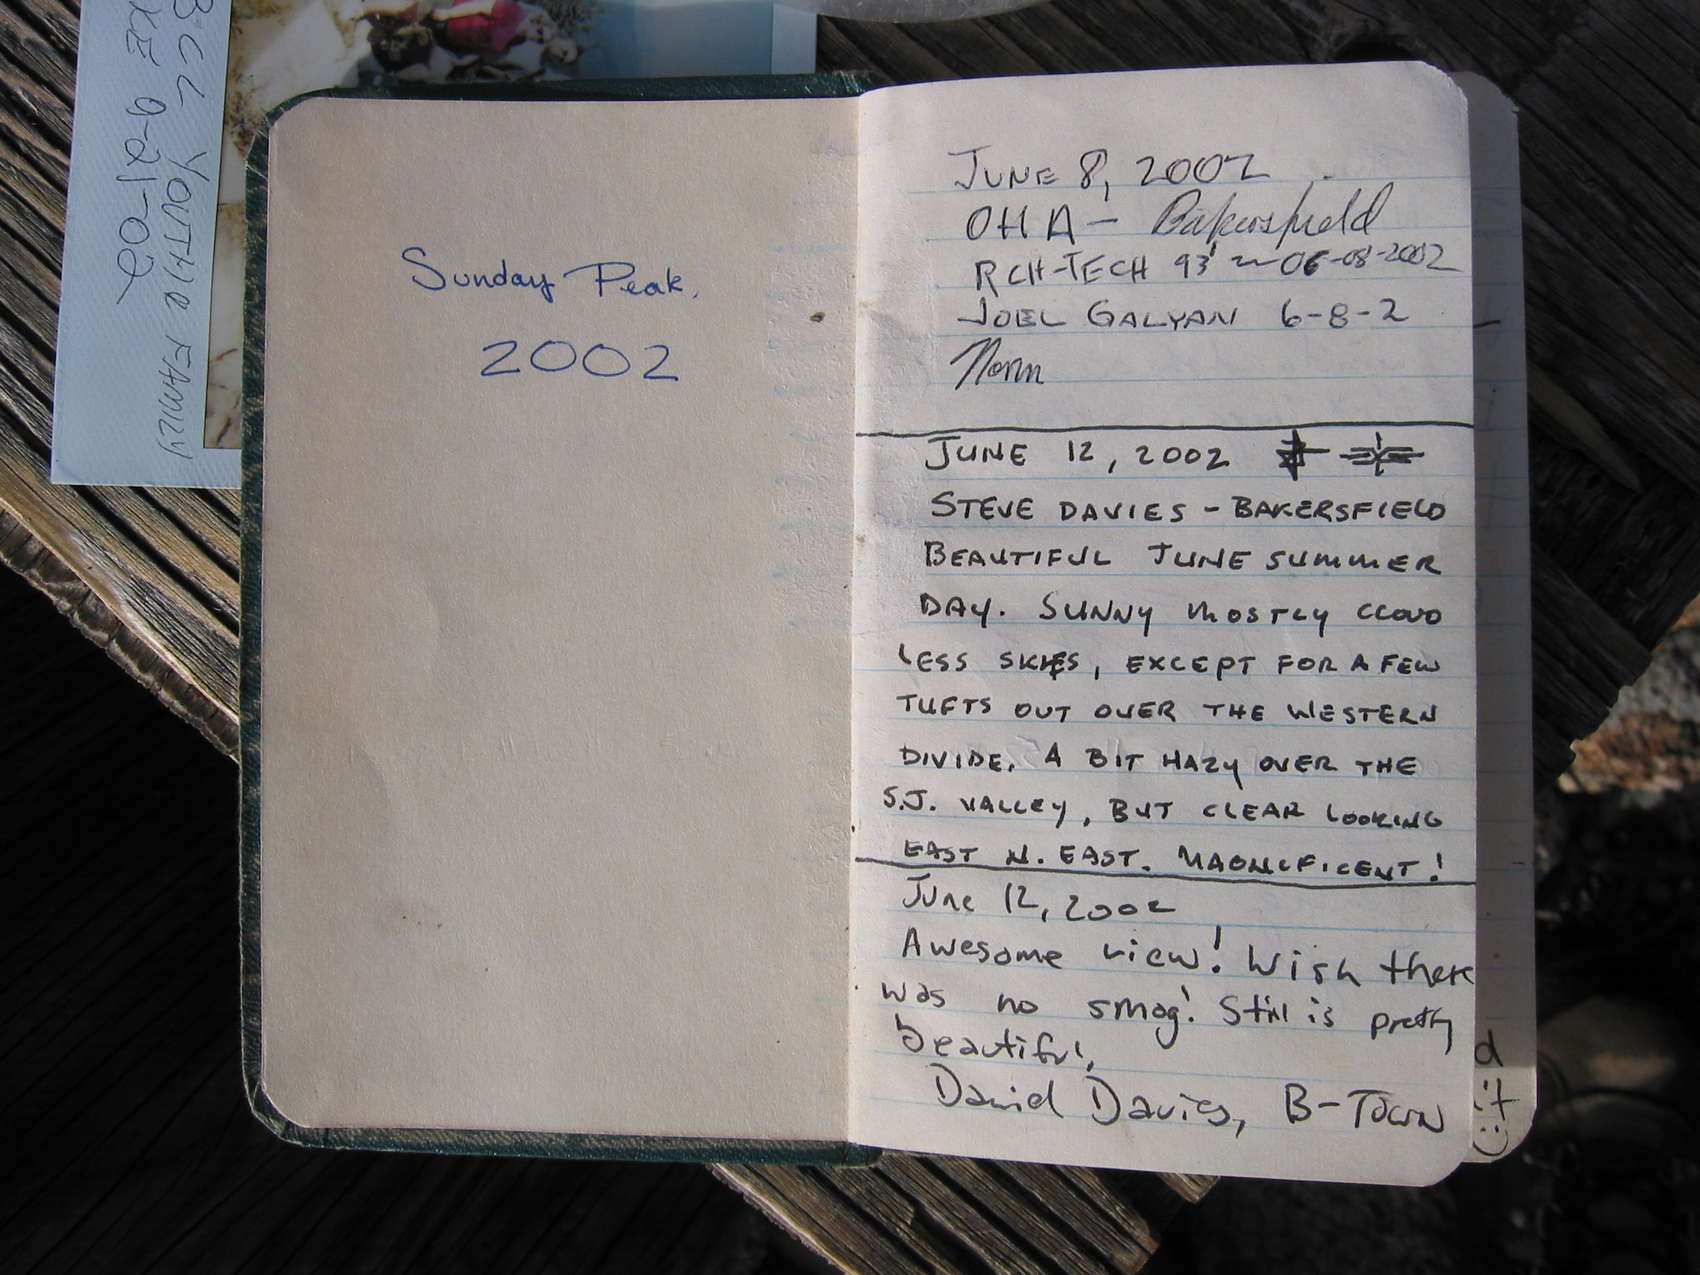 BCC YOUTH & FAMILY
9-21-02
Sunday Peak,
2002
JUNE 8, 2002
OHA - Bakersfield
RCH-TECH 93' ~ 06-08-2002
JOEL GALYAN 6-8-2
Norm
JUNE 12, 2002
STEVE DAVIES - BAKERSFIELD
BEAUTIFUL JUNE SUMMER
DAY. SUNNY MOSTLY CLOUD
LESS SKIES, EXCEPT FOR A FEW
TUFTS OUT OVER THE WESTERN
DIVIDE. A BIT HAZY OVER THE
S.J. VALLEY, BUT CLEAR LOOKING
EAST N. EAST. MAGNIFICENT!
June 12, 2002
Awesome view! Wish there
was no smog! Still is pretty
beautiful,
David Davies, B-Town
d
it